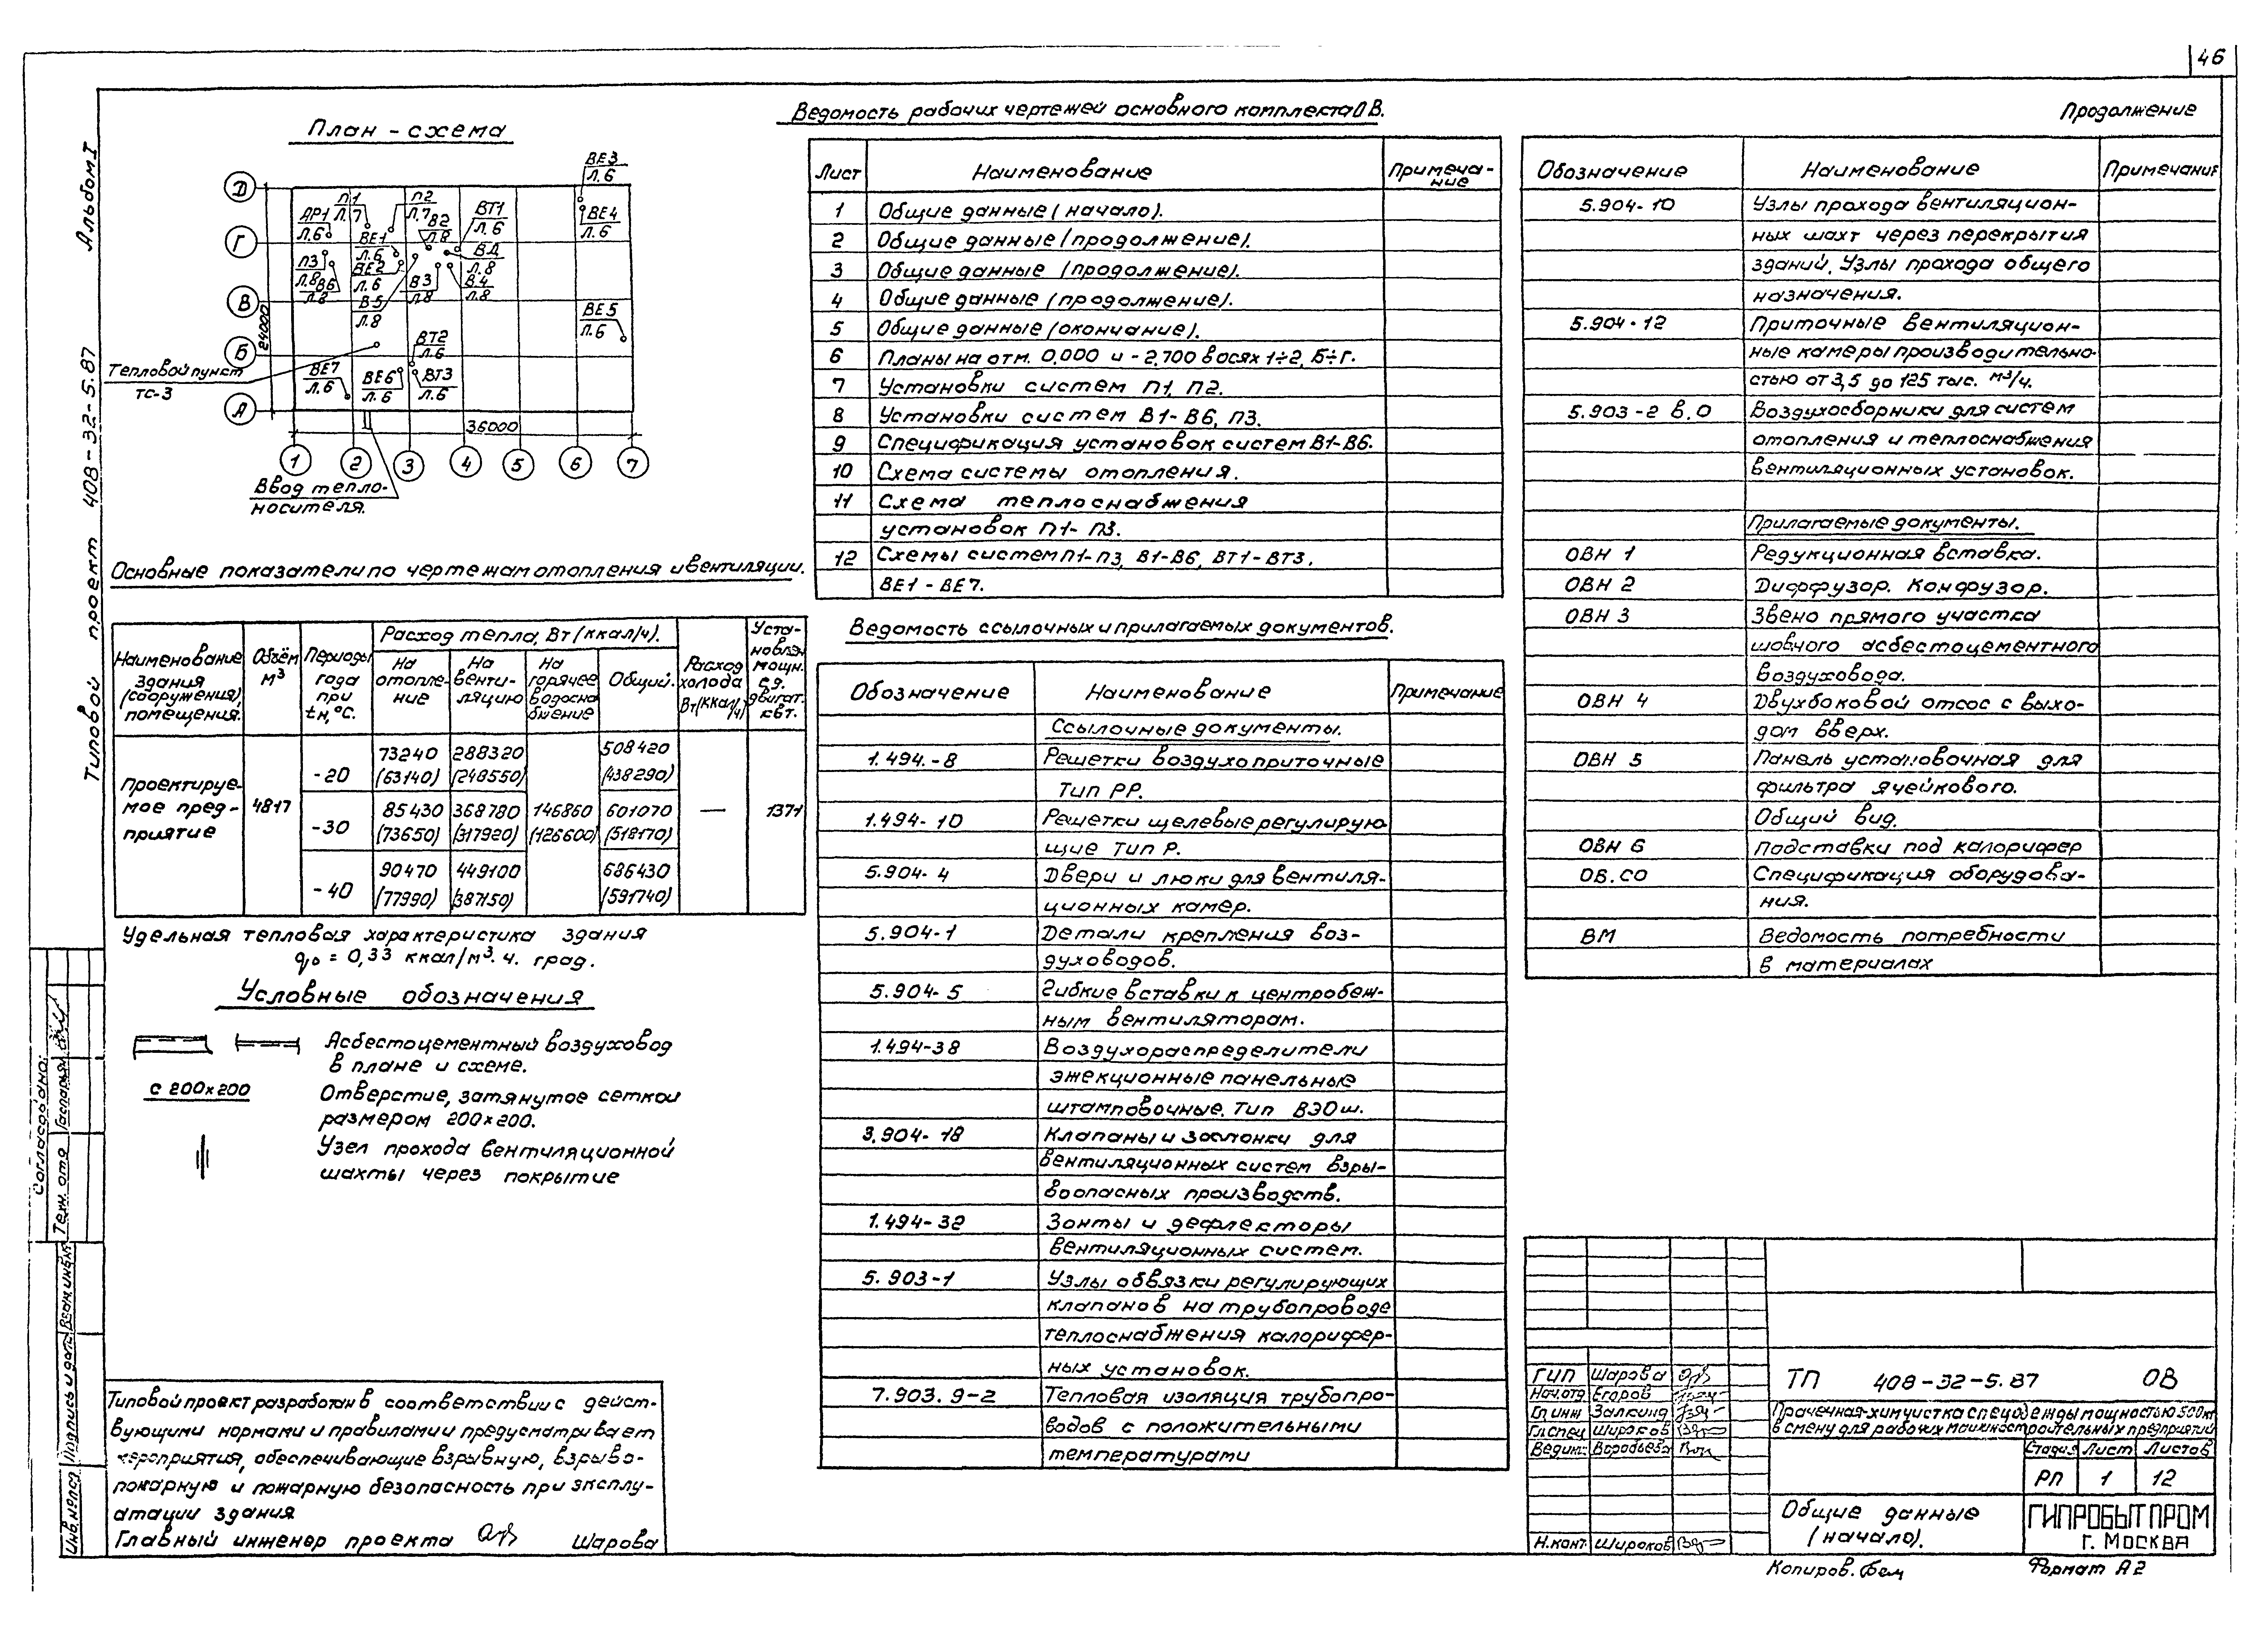 46
Альбом I
Типовой проект 408-32-5.87
План - схема
Д
Г
В
Б
А
24000
36000
1 2 3 4 5 6 7
АР1 Л.6
П1 Л.7
П2 Л.7
В2 Л.8
ВТ1 Л.6
ВЕ3 Л.6
ВЕ4 Л.6
ВЕ1 Л.6
ВЕ2 Л.6
П3 Л.8
В6 Л.8
В5 Л.8
В3 Л.8
В4 Л.8
ВЕ5 Л.6
ВТ2 Л.6
ВТ3 Л.6
ВЕ6 Л.6
ВЕ7 Л.6
Тепловой пункт
ТС-3
Ввод тепло-
носителя.
Основные показатели по чертежам отопления и вентиляции.
Наименование здания (сооружения), помещения.
Объём м³
Периоды года при tн,°С.
Расход тепла, Вт (ккал/ч).
На отопле-ние
На венти-ляцию
На горячее водосна бжение
Общий.
Расход холода Вт(ккал/ч)
Уста-новлен мощн. эл. двигат. квт.
Проектируе-
мое пред-
приятие
4817
-20 73240 (63140) 288320 (248550) 508420 (438290)
-30 85430 (73650) 368780 (317920) 146860 (126600) 601070 (518170) — 1371
-40 90470 (77990) 449100 (387150) 686430 (591740)
Удельная тепловая характеристика здания
q₀ = 0,33 ккал/м³.ч. град.
Условные обозначения
Асбестоцементный воздуховод
в плане и схеме.
С 200х200 Отверстие, затянутое сеткой
размером 200х200.
Узел прохода вентиляционной
шахты через покрытие
Типовой проект разработан в соответствии с дейст-
вующими нормами и правилами предусматривает
мероприятия, обеспечивающие взрывную, взрыво-
пожарную и пожарную безопасность при эксплу-
атации здания
Главный инженер проекта Шарова
Ведомость рабочих чертежей основного комплекта ОВ.
Лист Наименование Примеча-ние
1 Общие данные (начало).
2 Общие данные (продолжение).
3 Общие данные (продолжение).
4 Общие данные (продолжение).
5 Общие данные (окончание).
6 Планы на отм. 0,000 и -2,700 в осях 1÷2, Б÷Г.
7 Установки систем П1, П2.
8 Установки систем В1-В6, П3.
9 Спецификация установок систем В1-В6.
10 Схема системы отопления.
11 Схема теплоснабжения
установок П1-П3.
12 Схемы систем П1-П3, В1-В6, ВТ1-ВТ3,
ВЕ1-ВЕ7.
Ведомость ссылочных и прилагаемых документов.
Обозначение Наименование Примечание
Ссылочные документы.
1.494.-8 Решетки воздухоприточные
Тип РР.
1.494-10 Решетки щелевые регулирую-
щие Тип Р.
5.904-4 Двери и люки для вентиля-
ционных камер.
5.904-1 Детали крепления воз-
духоводов.
5.904-5 Гибкие вставки к центробеж-
ным вентиляторам.
1.494-38 Воздухораспределители
эжекционные панельные
штамповочные. Тип ВЭОш.
3.904-18 Клапаны и заслонки для
вентиляционных систем взры-
воопасных производств.
1.494-32 Зонты и дефлекторы
вентиляционных систем.
5.903-1 Узлы обвязки регулирующих
клапанов на трубопроводе
теплоснабжения калорифер-
ных установок.
7.903.9-2 Тепловая изоляция трубопро-
водов с положительными
температурами
Продолжение
Обозначение Наименование Примечание
5.904-10 Узлы прохода вентиляцион-
ных шахт через перекрытия
зданий. Узлы прохода общего
назначения.
5.904-12 Приточные вентиляцион-
ные камеры производительно-
стью от 3,5 до 125 тыс. м³/ч.
5.903-2 В.0 Воздухосборники для систем
отопления и теплоснабжения
вентиляционных установок.
Прилагаемые документы.
ОВН 1 Редукционная вставка.
ОВН 2 Диффузор. Конфузор.
ОВН 3 Звено прямого участка
шовного асбестоцементного
воздуховода.
ОВН 4 Двухбоковой отсос с выхо-
дом вверх.
ОВН 5 Панель установочная для
фильтра ячейкового.
Общий вид.
ОВН 6 Подставки под калорифер
ОВ.СО Спецификация оборудова-
ния.
ВМ Ведомость потребности
в материалах
ГИП Шарова
Нач.отд Егоров
Гл инж Залкинд
Гл.спец Широков
Вед.инж Воробьева
Н.конт Широков
ТП 408-32-5.87 ОВ
Прачечная-химчистка спецодежды мощностью 500кг
в смену для рабочих машиностроительных предприятий
Стадия Лист Листов
РП 1 12
Общие данные
(начало).
ГИПРОБЫТПРОМ
г. МОСКВА
Копиров. Бем
Формат А2
Согласовано:
Техн. отд Гаспарян
Взам.инв.№
Подпись и дата
Инв.№ подл.